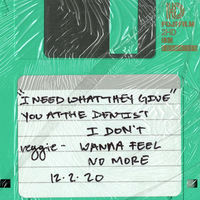 FUJIFILM
2HD
"I NEED WHAT THEY GIVE"
YOU AT THE DENTIST
I DON'T
reggie - WANNA FEEL
NO MORE
12.2.20